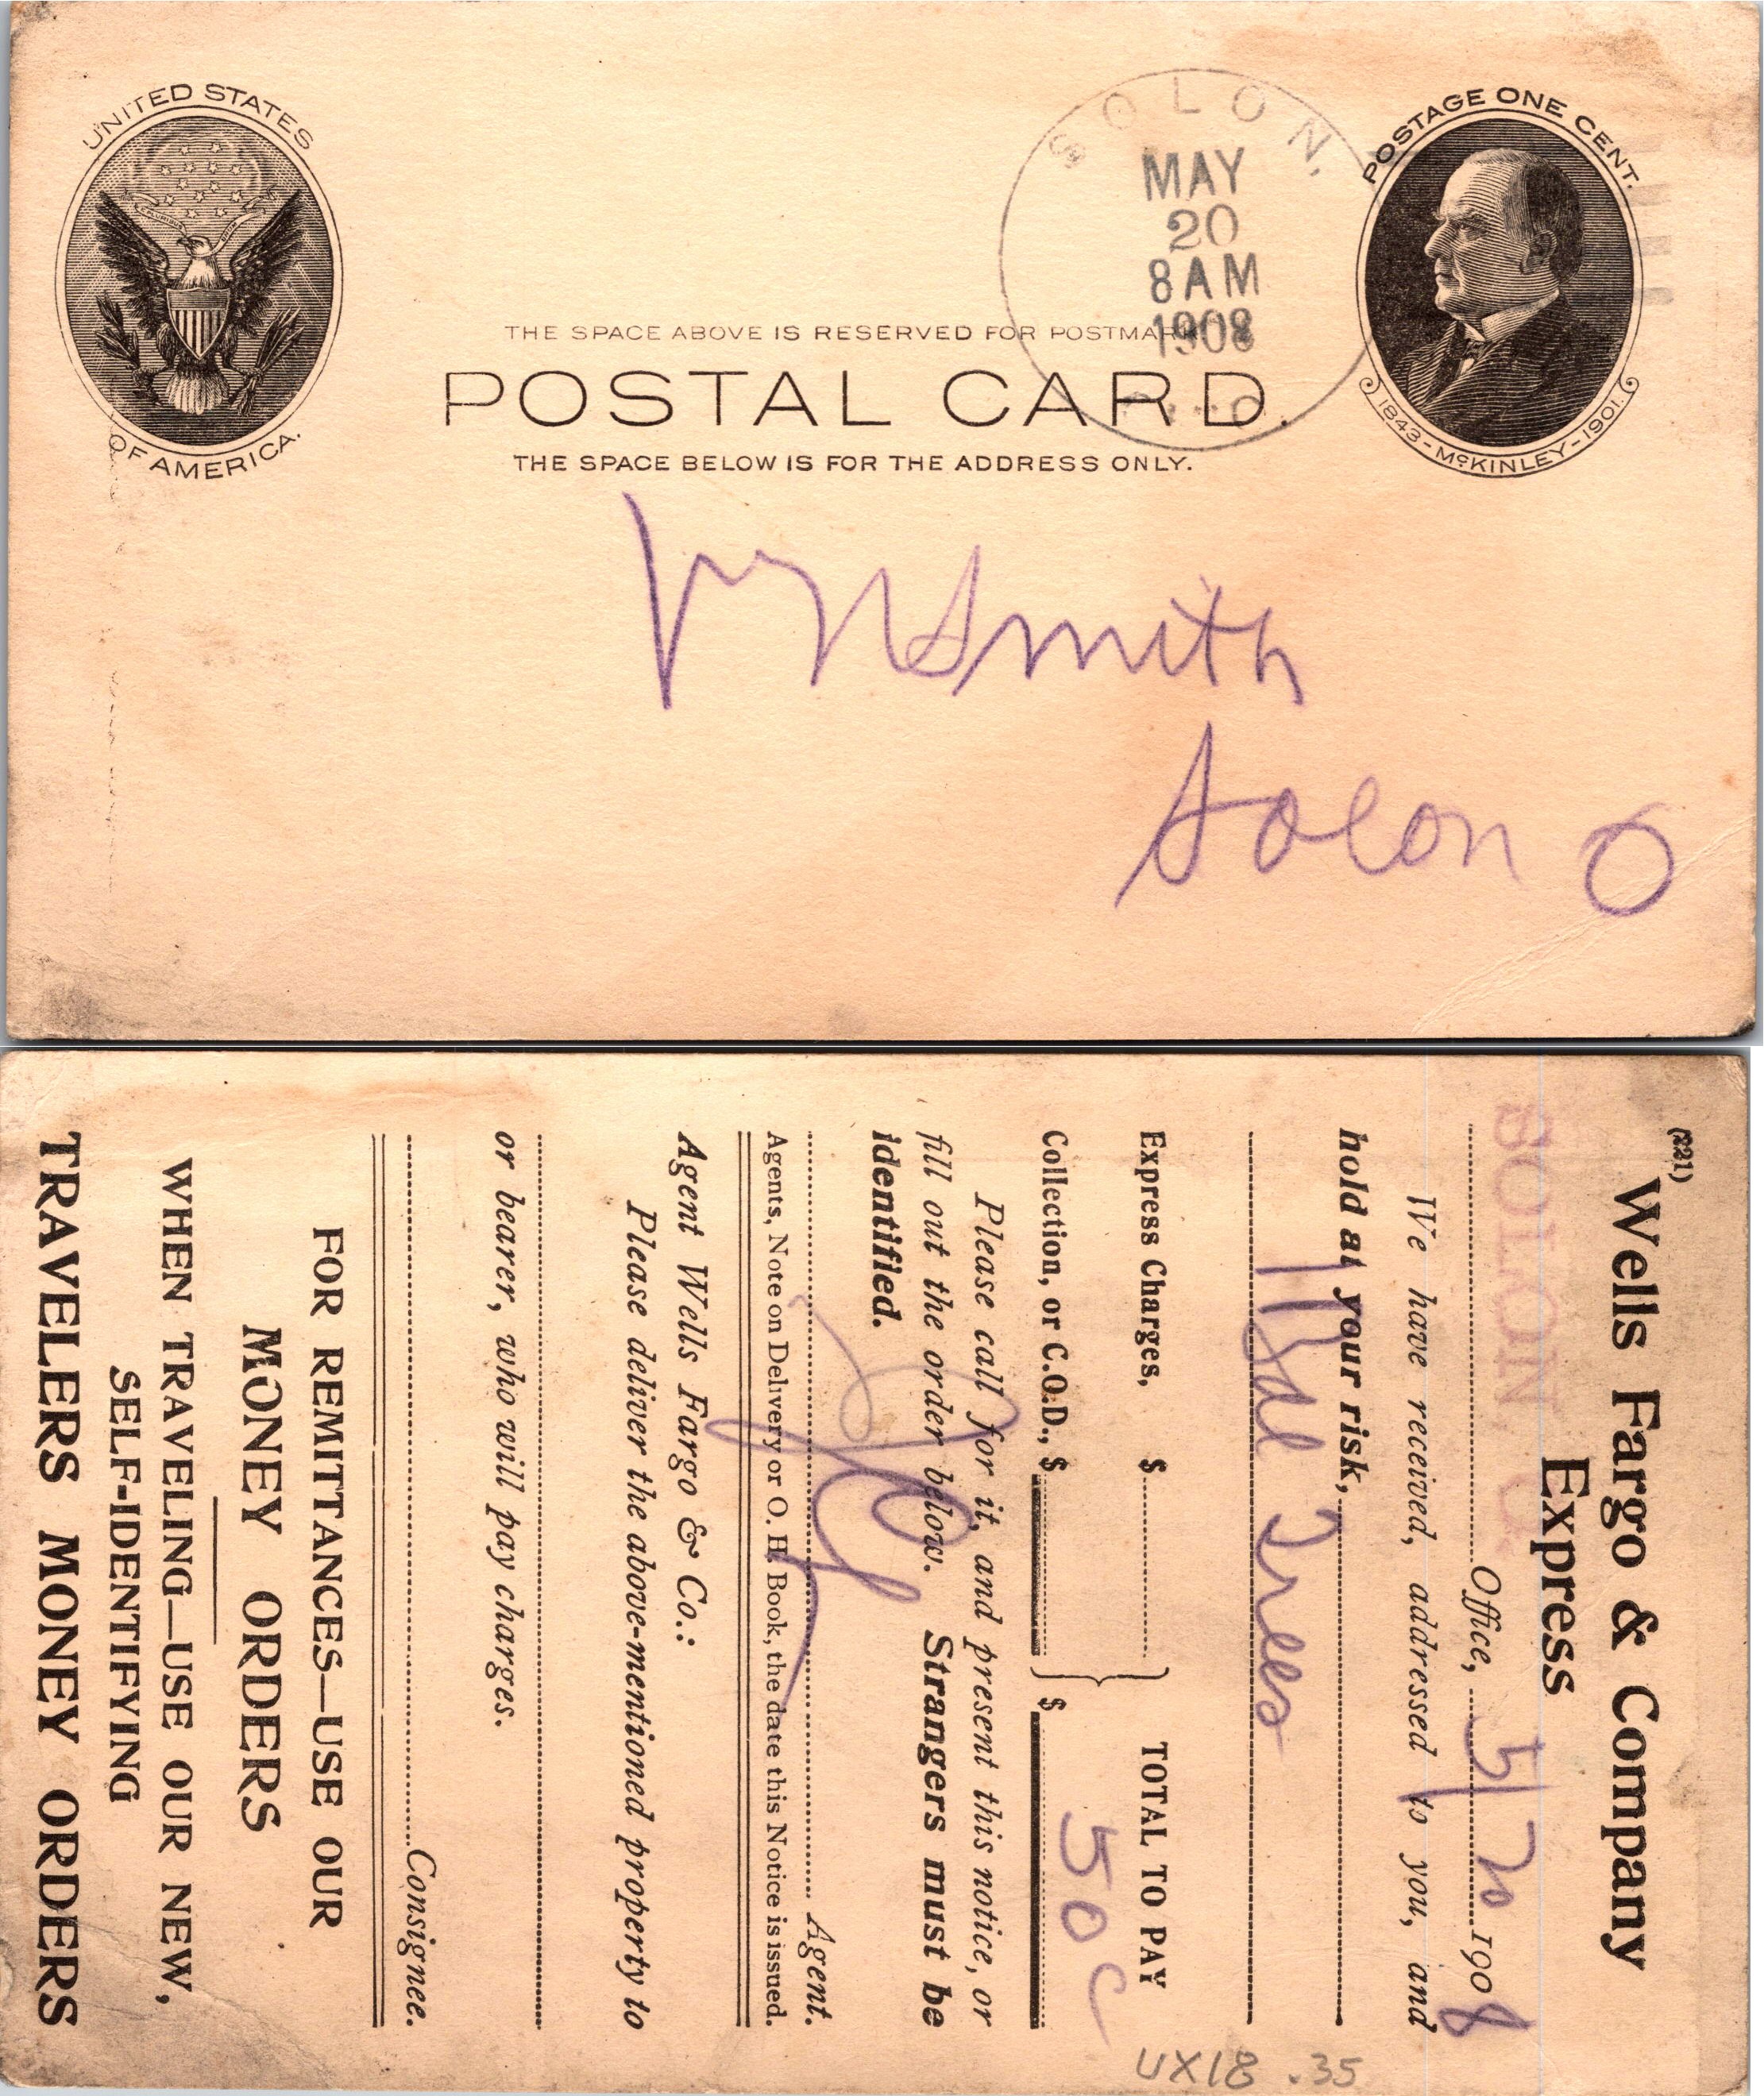 UNITED STATES
OF AMERICA.
SOLON,
MAY
20
8 AM
1908
POSTAGE ONE CENT.
1843-McKINLEY-1901.
THE SPACE ABOVE IS RESERVED FOR POSTMARK
POSTAL CARD.
THE SPACE BELOW IS FOR THE ADDRESS ONLY.
Smith
Solon O
(221)
Wells Fargo & Company
Express
SOLON, O.
Office, 5/20 1908
We have received, addressed to you, and
hold at your risk,
1 Bdl Trees
Express Charges, $
TOTAL TO PAY
Collection, or C.O.D., $
$ 50c
Please call for it, and present this notice, or
fill out the order below. Strangers must be
identified.
Agent.
Agents, Note on Delivery or O. H. Book, the date this Notice is issued.
Agent Wells Fargo & Co.:
Please deliver the above-mentioned property to
or bearer, who will pay charges.
Consignee.
FOR REMITTANCES—USE OUR
MONEY ORDERS
WHEN TRAVELING—USE OUR NEW,
SELF-IDENTIFYING
TRAVELERS MONEY ORDERS
UX18 .35